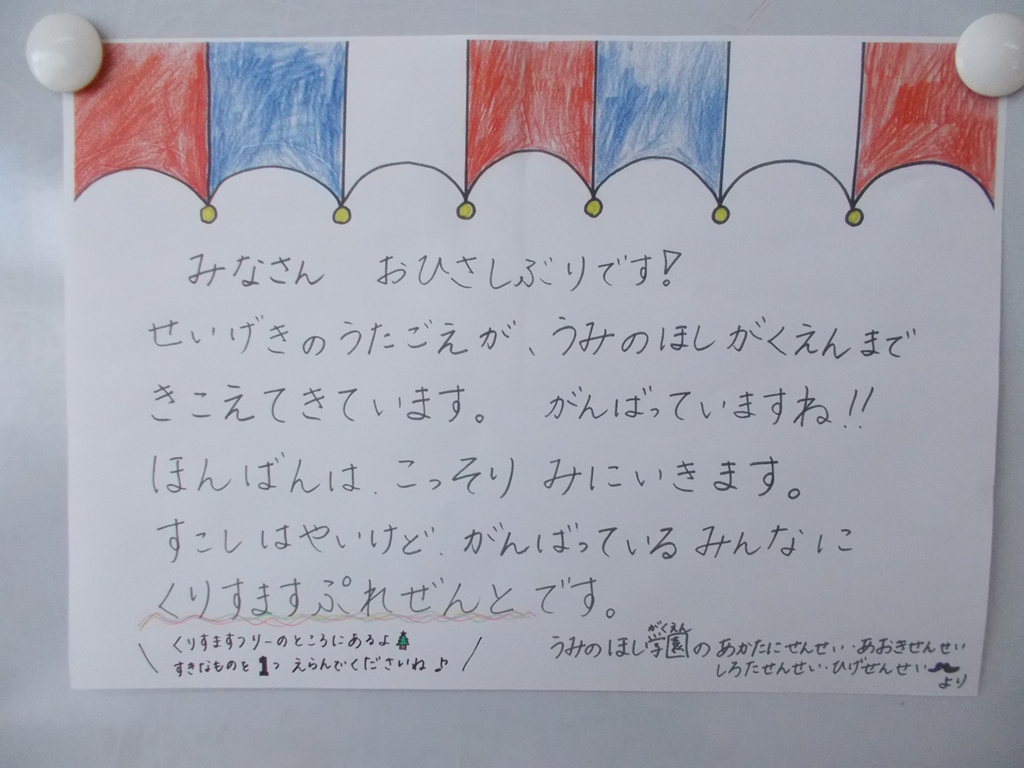 みなさん おひさしぶりです!
せいげきのうたごえが、うみのほしがくえんまで
きこえてきています。 がんばっていますね!!
ほんばんは、こっそり みにいきます。
すこしはやいけど、がんばっているみんなに
くりすますぷれぜんとです。
くりすますツリーのところにあるよ
すきなものを1つ えらんでくださいね♪
がくえん
うみのほし学園の あかたにせんせい・あおきせんせい
しろたせんせい・ひげせんせい
より